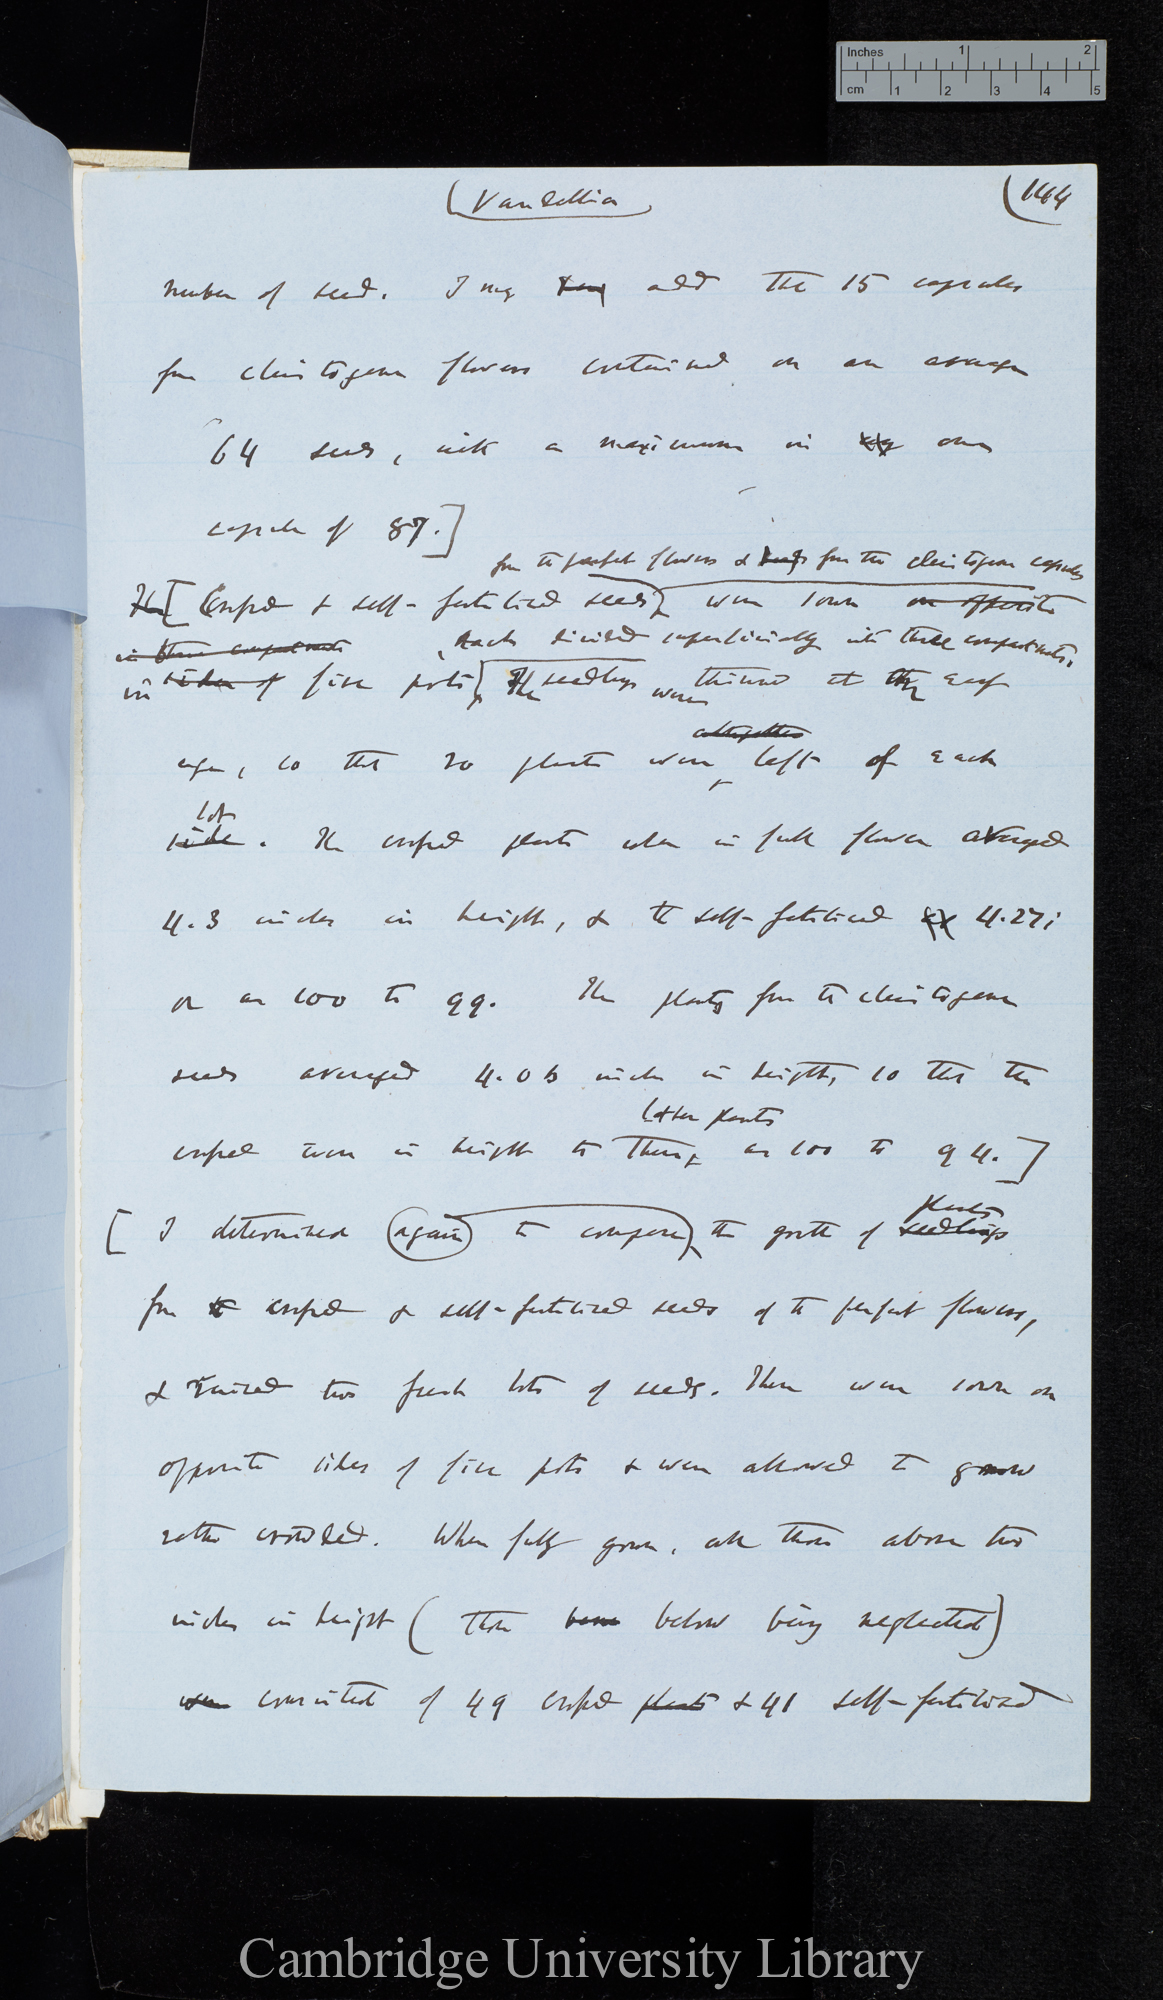 Inches 1 2
cm 1 2 3 4 5
(Vandellia) (144
number of seed. I may add that 15 capsules
from cleistogene flowers contained on an average
64 seeds, with a maximum in one
capsule of 87.]
from the perfect flowers & seeds from the cleistogene capsules
The [Crossed & self-fertilised seeds were sown on opposite
in three compartments each divided superficially into three compartments.
in sides of five pots, The seedlings were thinned at an early
altogether
age, so that 20 plants were left of each
lot
side. The crossed plants when in full flower averaged
4.3 inches in height, & the self-fertilised 4.27;
or as 100 to 99. The plants from the cleistogene
seeds averaged 4.06 inches in height, so that the
latter plants
crossed were in height to these as 100 to 94.]
plants
[ I determined again to compare the growth of seedlings
from the crossed & self-fertilised seeds of the perfect flowers,
& raised two fresh lots of seeds. These were sown on
opposite sides of five pots & were allowed to grow
rather crowded. When fully grown, all those above two
inches in height (those below being neglected)
were consisted of 49 crossed plants & 41 self-fertilised
Cambridge University Library